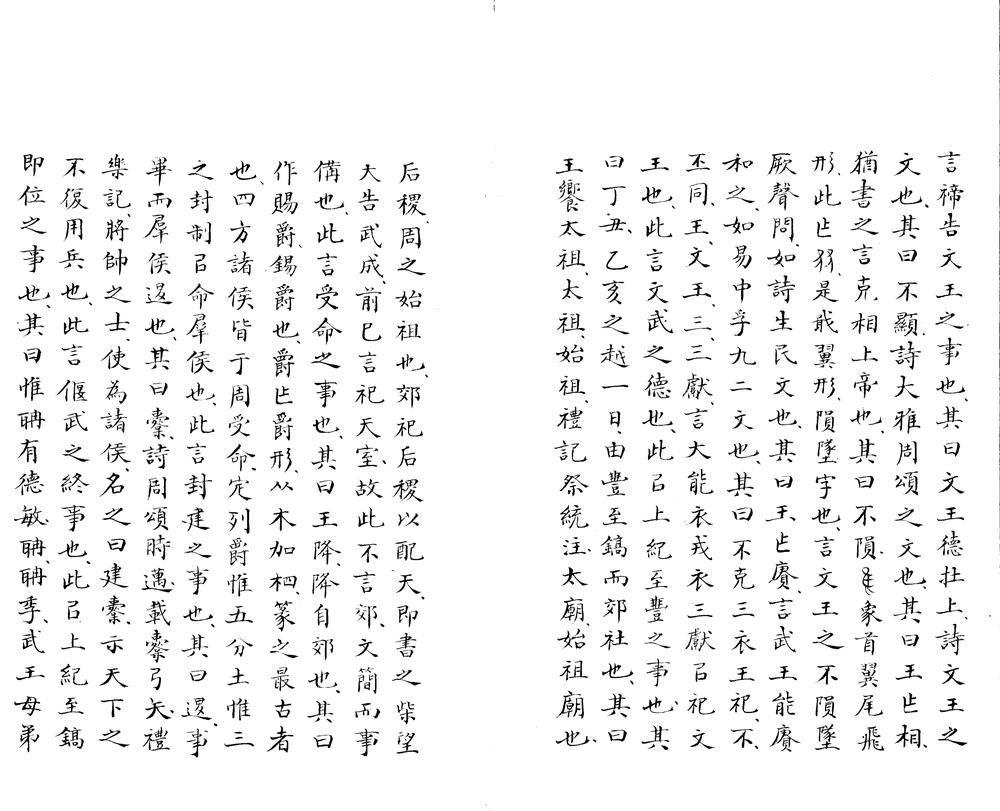 言禘告文王之事也、其曰文王德扗上、詩文王之
文也、其曰不顯、詩大雅周頌之文也、其曰王㠯相、
猶書之言克相上帝也、其曰不隕、象首翼尾飛
形、此㠯犾是㦰翼形、隕墜字也、言文王之不隕墜
厥聲問、如詩生民文也、其曰王㠯賡、言武王能賡
和之、如易中孚九二文也、其曰不克三衣王祀、不、
丕同、王、文王、三、三獻、言大能衣戎衣三獻㠯祀文
王也、此言文武之德也、此㠯上紀至豐之事也、其
曰丁丑、乙亥之越一日、由豐至鎬而郊社也、其曰
王饗太祖、太祖、始祖、禮記祭統注、太廟、始祖廟也、
后稷、周之始祖也、郊祀后稷以配天、即書之柴望
大告武成、前巳言祀天室、故此不言郊、文簡而事
僃也、此言受命之事也、其曰王降、降自郊也、其曰
作賜爵、錫爵也、爵㠯爵形、从木加柶、篆之最古者
也、四方諸侯皆于周受命、定列爵惟五分土惟三
之封制㠯命羣侯也、此言封建之事也、其曰退、事
畢而羣侯退也、其曰櫜、詩周頌時邁、載櫜弓矢、禮
樂記、將帥之士、使為諸侯、名之曰建櫜、示天下之
不復用兵也、此言偃武之終事也、此㠯上紀至鎬
即位之事也、其曰惟聃有德敏、聃、聃季、武王母弟